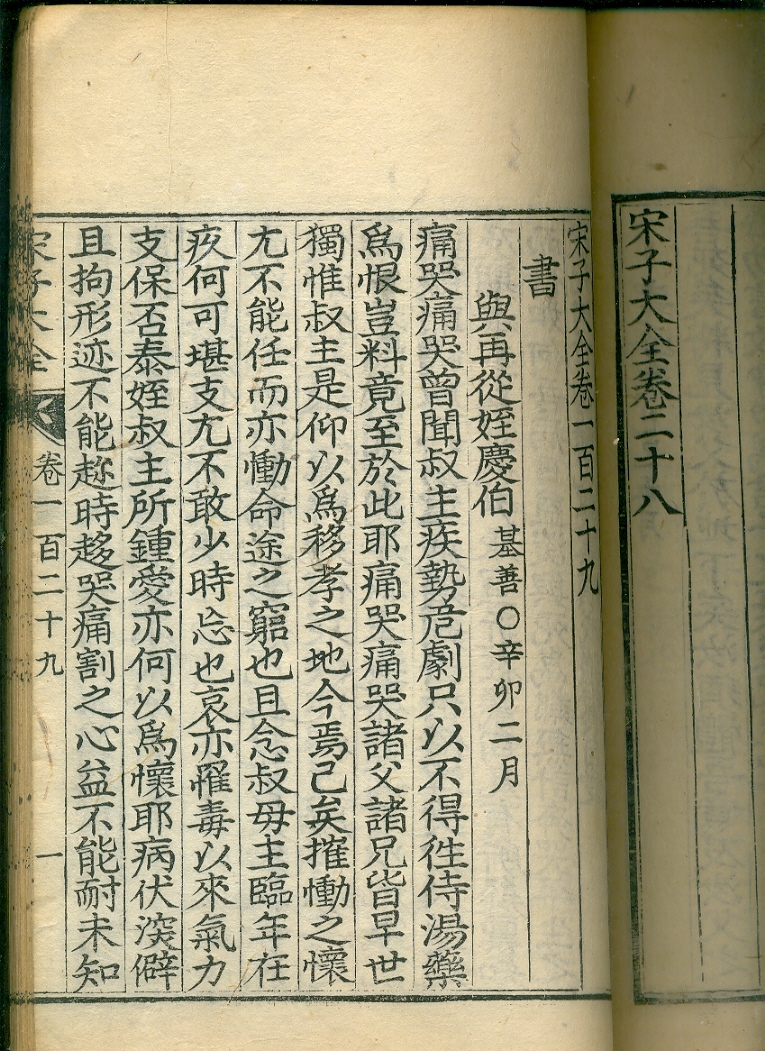 宋子大全卷二十八
宋子大全卷一百二十九
書
與再從姪慶伯 基善○辛卯二月
痛哭痛哭曾聞叔主疾勢危劇只以不得往侍湯藥
爲恨豈料竟至於此耶痛哭痛哭諸父諸兄皆早世
獨惟叔主是仰以爲移孝之地今焉已矣摧慟之懷
尤不能任而亦慟命途之窮也且念叔母主臨年在
疚何可堪支尤不敢少時忘也哀亦罹毒以來氣力
支保否泰姪叔主所鍾愛亦何以爲懷耶病伏深僻
且拘形迹不能趁時趍哭痛割之心益不能耐未知
宋子大全 卷一百二十九 一